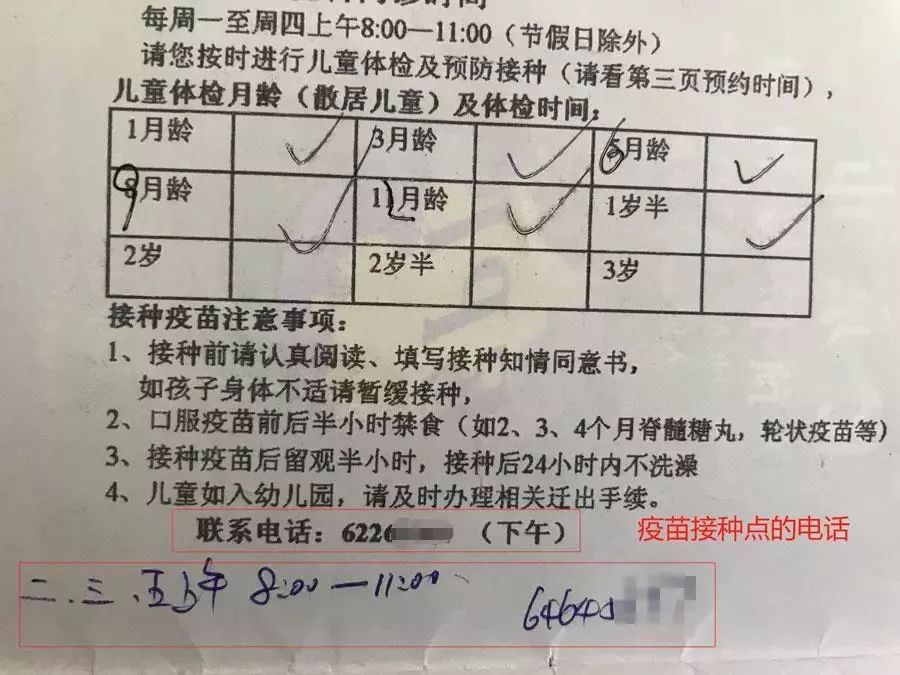 诊时间
每周一至周四上午8:00—11:00（节假日除外）
请您按时进行儿童体检及预防接种（请看第三页预约时间），
儿童体检月龄（散居儿童）及体检时间：
1月龄 3月龄 6月龄
9月龄 12月龄 1岁半
2岁 2岁半 3岁
接种疫苗注意事项：
1、接种前请认真阅读、填写接种知情同意书，
如孩子身体不适请暂缓接种，
2、口服疫苗前后半小时禁食（如2、3、4个月脊髓糖丸，轮状疫苗等）
3、接种疫苗后留观半小时，接种后24小时内不洗澡
4、儿童如入幼儿园，请及时办理相关迁出手续。
联系电话：6226 （下午）
疫苗接种点的电话
二.三.五上午 8:00—11:00
6464